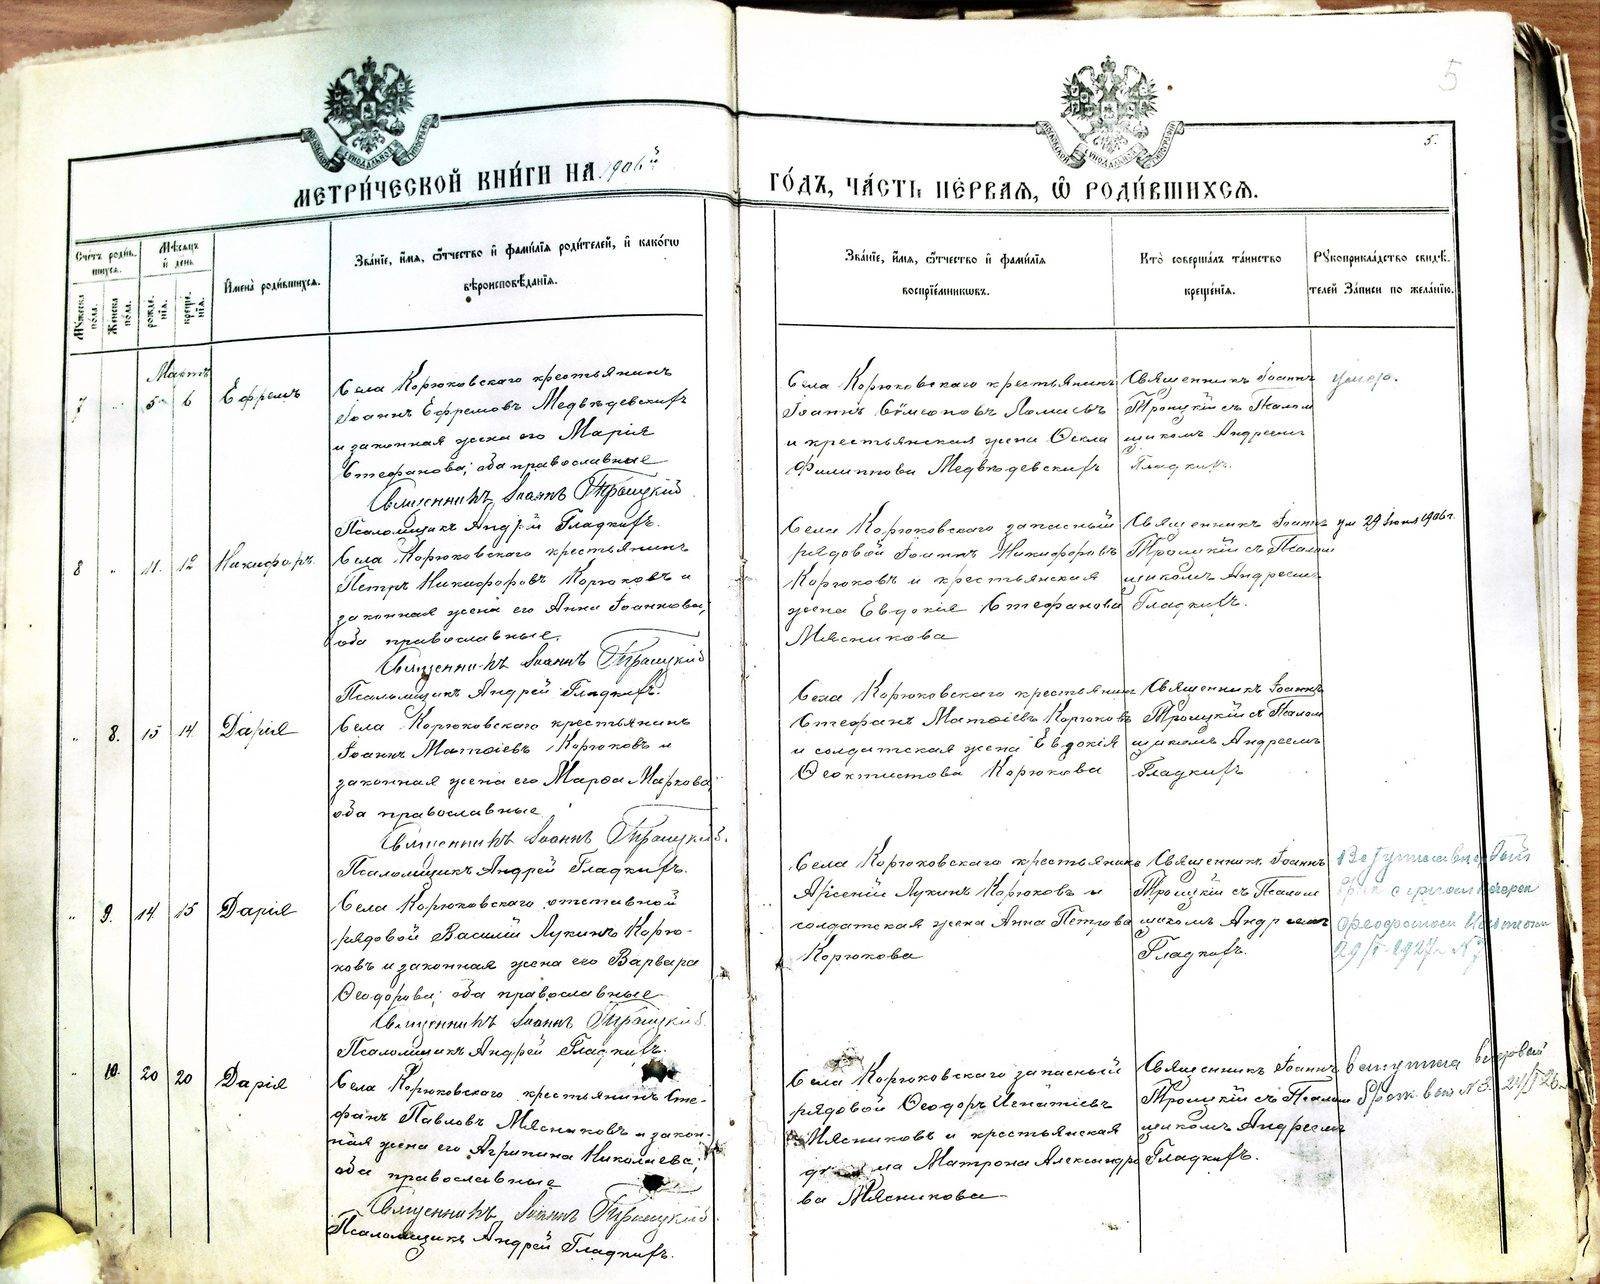 5
5.
МЕТРИ́ЧЕСКОЙ КНИ́ГИ НА 1906й
ГО́ДЪ, ЧА́СТЬ ПЕ́РВАЯ, Ѡ РОДИ́ВШИХСЯ.
Сче́тъ роди́вшихся.
Му́жеска по́ла.
Же́нска по́ла.
Мѣ́сяцъ и день
рожде́нія.
креще́нія.
Имена̀ роди́вшихся.
Зва́ніе, и́мя, ѻ҆́тчество и фами́лія роди́телей, и како́гѡ
вѣроисповѣ́данія.
Зва́ніе, и́мя, ѻ҆́тчество и фами́лія
воспріе́мниковъ.
Кто̀ соверша́лъ та́инство
креще́нія.
Рꙋкоприкла́дство свидѣ́телей за́писи по жела́нію.
Мартъ
7 " 5 6 Ефремъ
Села Корюковскаго крестьянинъ
Іоаннъ Ефремовъ Медвѣдевскихъ
и законная жена его Марія
Стефанова; оба православные
Священникъ Іоаннъ Троицкій
Псаломщикъ Андрей Гладкихъ.
Села Корюковскаго крестьянинъ
Іоаннъ Сѵмеоновъ Ломаевъ
и крестьянская жена Ѳекла
Филиппова Медвѣдевскихъ
Священникъ Іоаннъ
Троицкій съ Псалом
щикомъ Андреемъ
Гладкихъ.
умеръ.
8 " 11. 12 Никифоръ
Села Корюковскаго крестьянинъ
Петръ Никифоровъ Корюковъ и
законная жена его Анна Іоаннова;
оба православные.
Священникъ Іоаннъ Троицкій
Псаломщикъ Андрей Гладкихъ.
Села Корюковскаго запасный
рядовой Іоаннъ Никифоровъ
Корюковъ и крестьянская
жена Евдокія Стефанова
Мясникова
Священникъ Іоаннъ
Троицкій съ Псалом
щикомъ Андреемъ
Гладкихъ.
ум 29 Іюля 1906 г.
" 8. 13 14 Дарія
Села Корюковскаго крестьянинъ
Іоаннъ Матѳіевъ Корюковъ и
законная жена его Марѳа Маркова;
оба православные
Священникъ Іоаннъ Троицкій.
Псаломщикъ Андрей Гладкихъ.
Села Корюковскаго крестьянинъ
Стефанъ Матѳіевъ Корюковъ
и солдатская жена Евдокія
Ѳеоктистова Корюкова
Священникъ Іоаннъ
Троицкій съ Псалом
щикомъ Андреемъ
Гладкихъ
" 9. 14 15 Дарія
Села Корюковскаго отставной
рядовой Василій Лукинъ Корю-
ковъ и законная жена его Варвара
Ѳеодорова; оба православные
Священникъ Іоаннъ Троицкій.
Псаломщикъ Андрей Гладкихъ.
Села Корюковскаго крестьянинъ
Арсеній Лукинъ Корюковъ и
солдатская жена Анна Петрова
Корюкова
Священникъ Іоаннъ
Троицкій съ Псалом
щикомъ Андреемъ
Гладкихъ.
1927 г. № 7
" 10. 20 20 Дарія
Села Корюковскаго крестьянинъ Сте-
фанъ Павловъ Мясниковъ и закон-
ная жена его Агрипина Николаева;
оба православные
Священникъ Іоаннъ Троицкій.
Псаломщикъ Андрей Гладкихъ.
Села Корюковскаго запасный
рядовой Ѳеодоръ Игнатіевъ
Мясниковъ и крестьянская
Матрона Александро
ва Мясникова
Священникъ Іоаннъ
Троицкій съ Псалом
щикомъ Андреемъ
Гладкихъ.
вступила